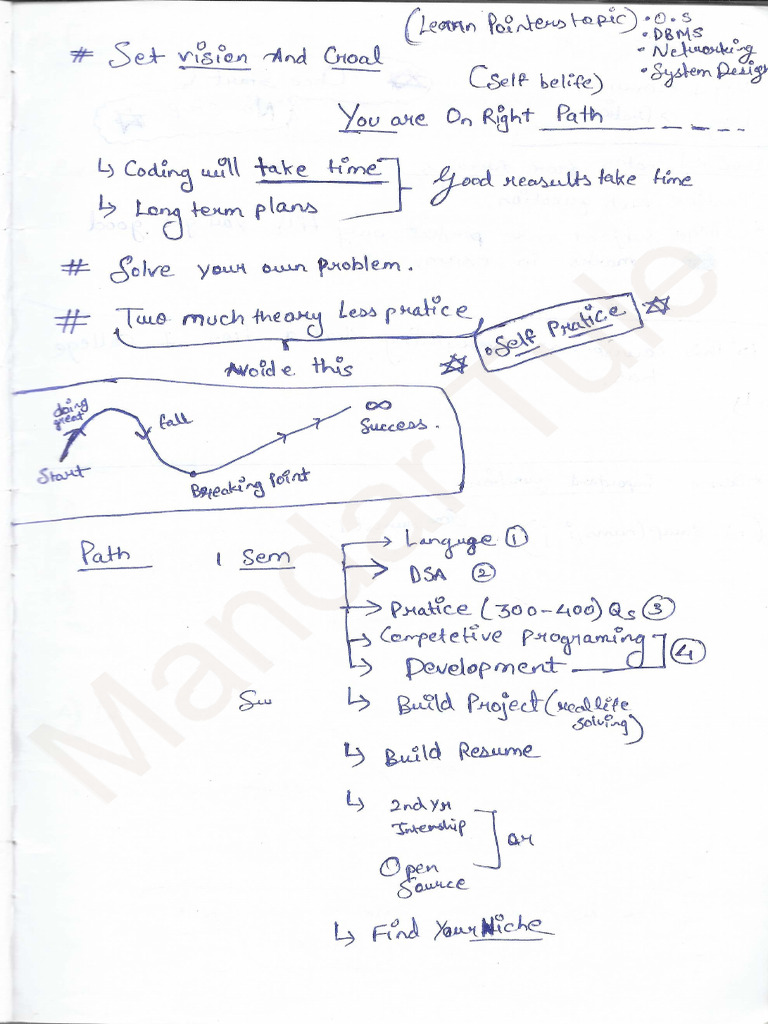 (Learn Pointers topic) • O.S
• DBMS
• Networking
• System Design
# Set vision And Goal
(Self belife)
You are On Right Path
↳ Coding will take time
↳ Long term plans
Good reasults take time
# Solve your own Problem.
# Two much theory Less pratice
• Self Pratice
Avoide this
doing great
fall
∞
Success.
Start
Breaking Point
Path 1 Sem
→ Languge ①
→ DSA ②
→ Pratice (300-400) Qs ③
→ Competetive programing
→ Development ④
↳ Build Project (real life
solving)
↳ Build Resume
↳ 2nd Yr
Internship
or
Open
Source
↳ Find Your Niche
Mandar Tule